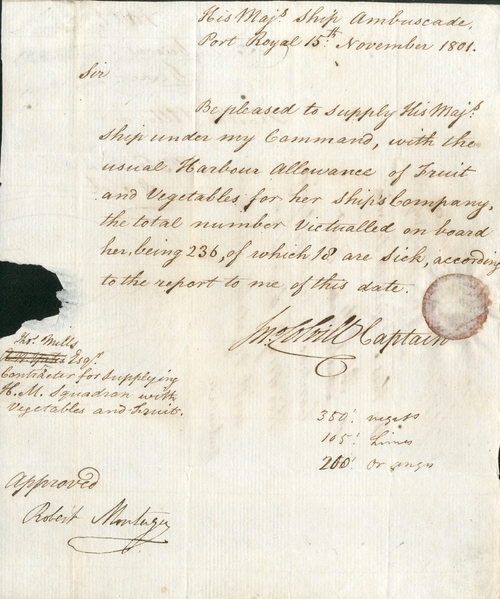 His Maj.s Ship Ambuscade,
Port Royal 15.th November 1801.
Sir
Be pleased to supply His Maj.s
Ship under my Command, with the
usual Harbour Allowance of Fruit
and Vegetables for her Ship's Company,
the total number Victualled on board
her, being 236, of which 18 are Sick, according
to the report to me of this date.
Jno. Colvill Captain
Tho.s Mills
Esq.r
Contractor for Supplying
H. M. Squadron with
Vegetables and Fruit.
350
105 Limes
200 Oranges
Approved
Robert Montagu